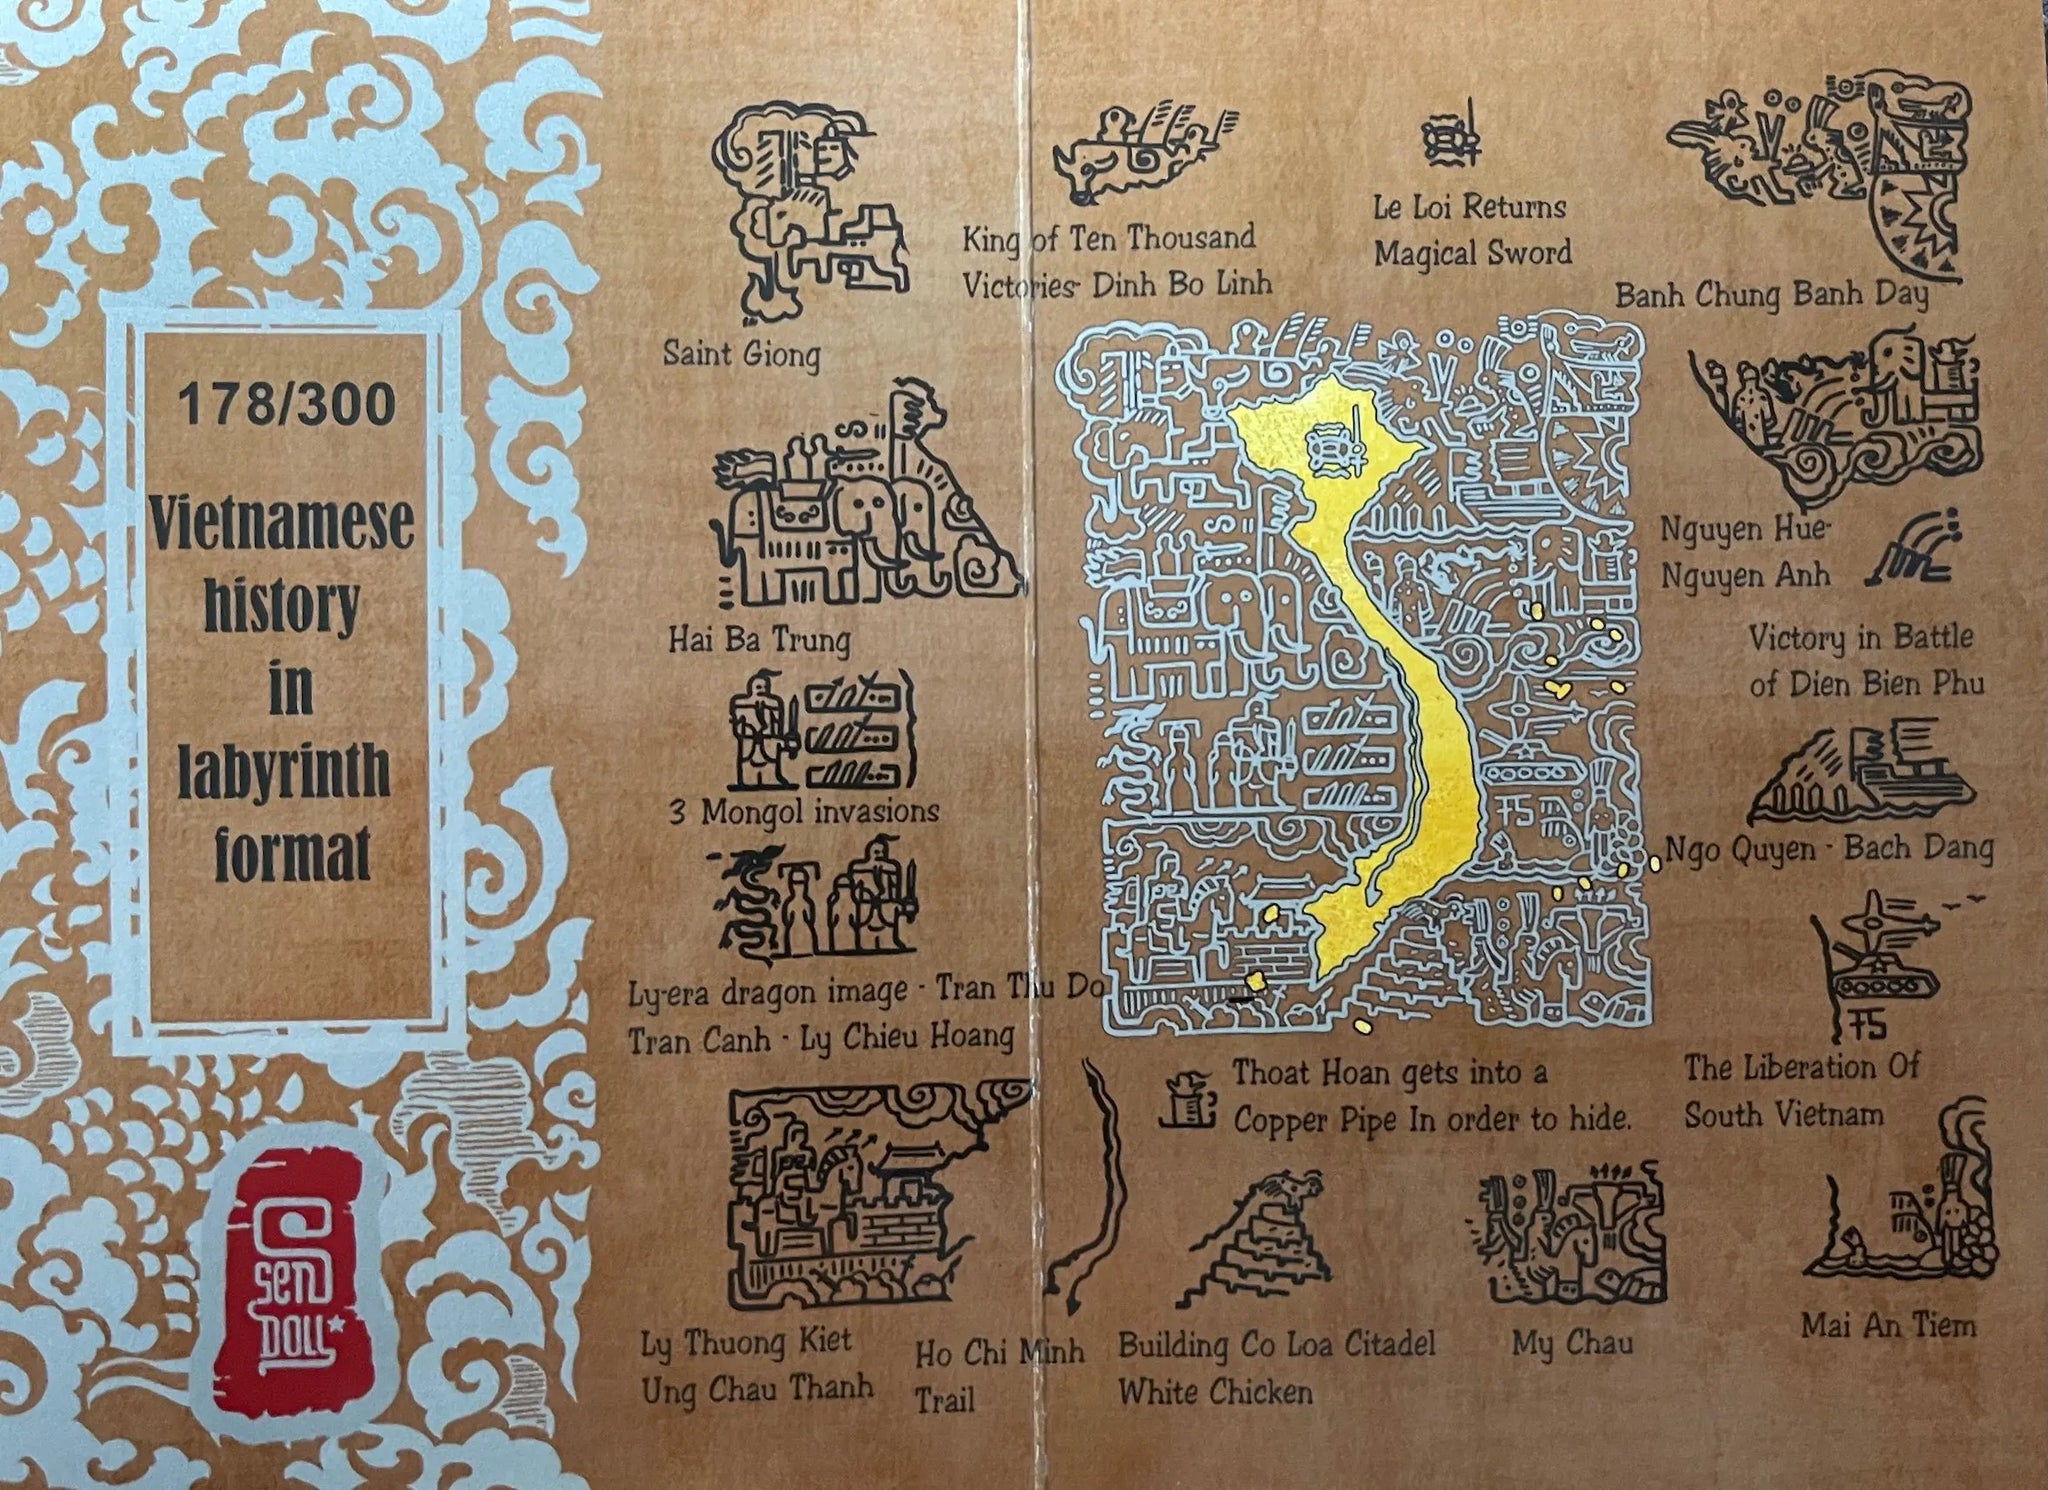 178/300
Vietnamese
history
in
labyrinth
format
Sen
Doll
Saint Giong
King of Ten Thousand
Victories- Dinh Bo Linh
Le Loi Returns
Magical Sword
Banh Chung Banh Day
Hai Ba Trung
Nguyen Hue-
Nguyen Anh
Victory in Battle
of Dien Bien Phu
3 Mongol invasions
Ngo Quyen - Bach Dang
Ly-era dragon image - Tran Thu Do
Tran Canh - Ly Chieu Hoang
75
75
The Liberation Of
South Vietnam
Thoat Hoan gets into a
Copper Pipe In order to hide.
Ly Thuong Kiet
Ung Chau Thanh
Ho Chi Minh
Trail
Building Co Loa Citadel
White Chicken
My Chau
Mai An Tiem